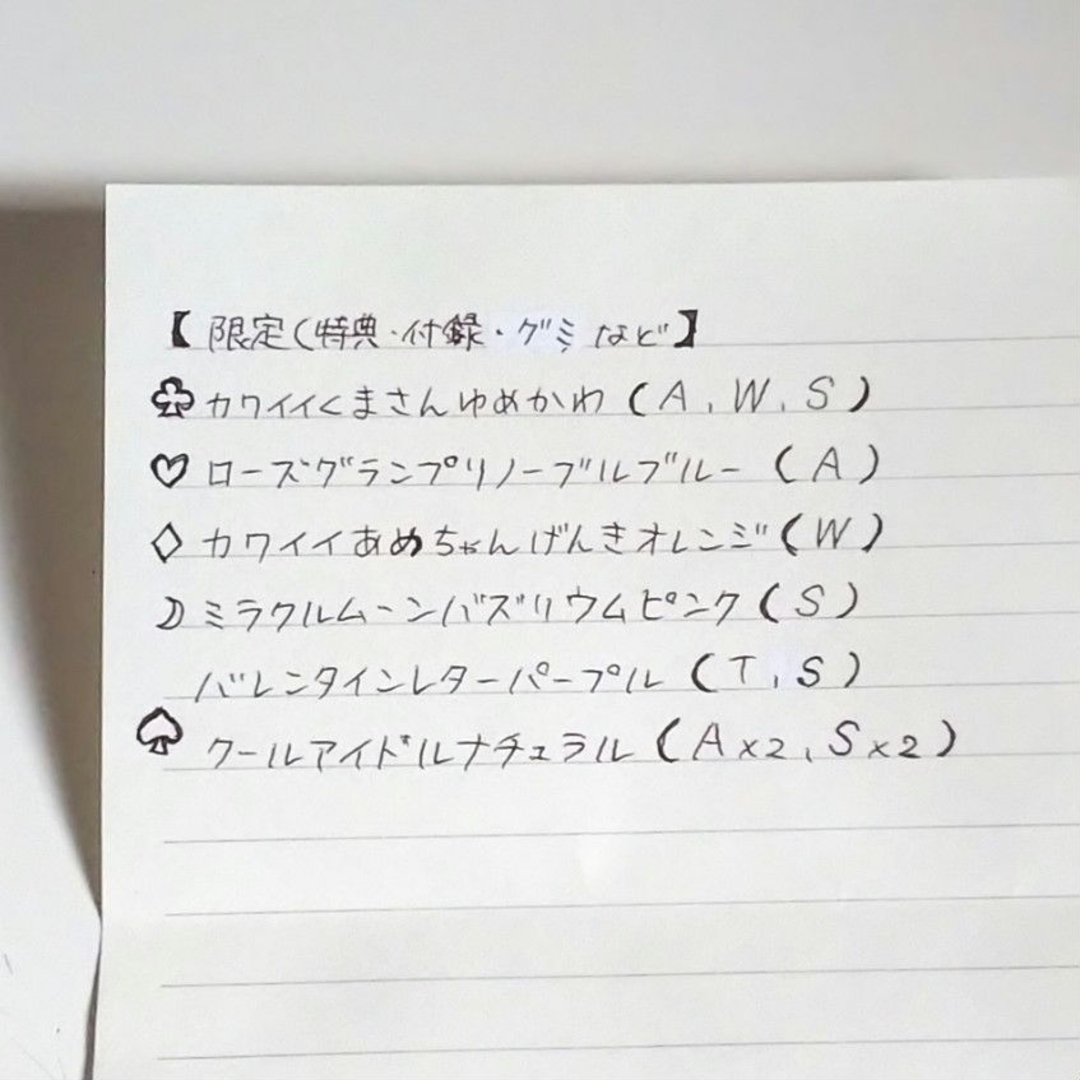 【限定(特典・付録・グミなど】
♧カワイイくまさんゆめかわ(A,W,S)
♡ローズグランプリノーブルブルー(A)
◇カワイイあめちゃんげんきオレンジ(W)
☽ミラクルムーンバズリウムピンク(S)
バレンタインレターパープル(T,S)
♤クールアイドルナチュラル(A×2,S×2)